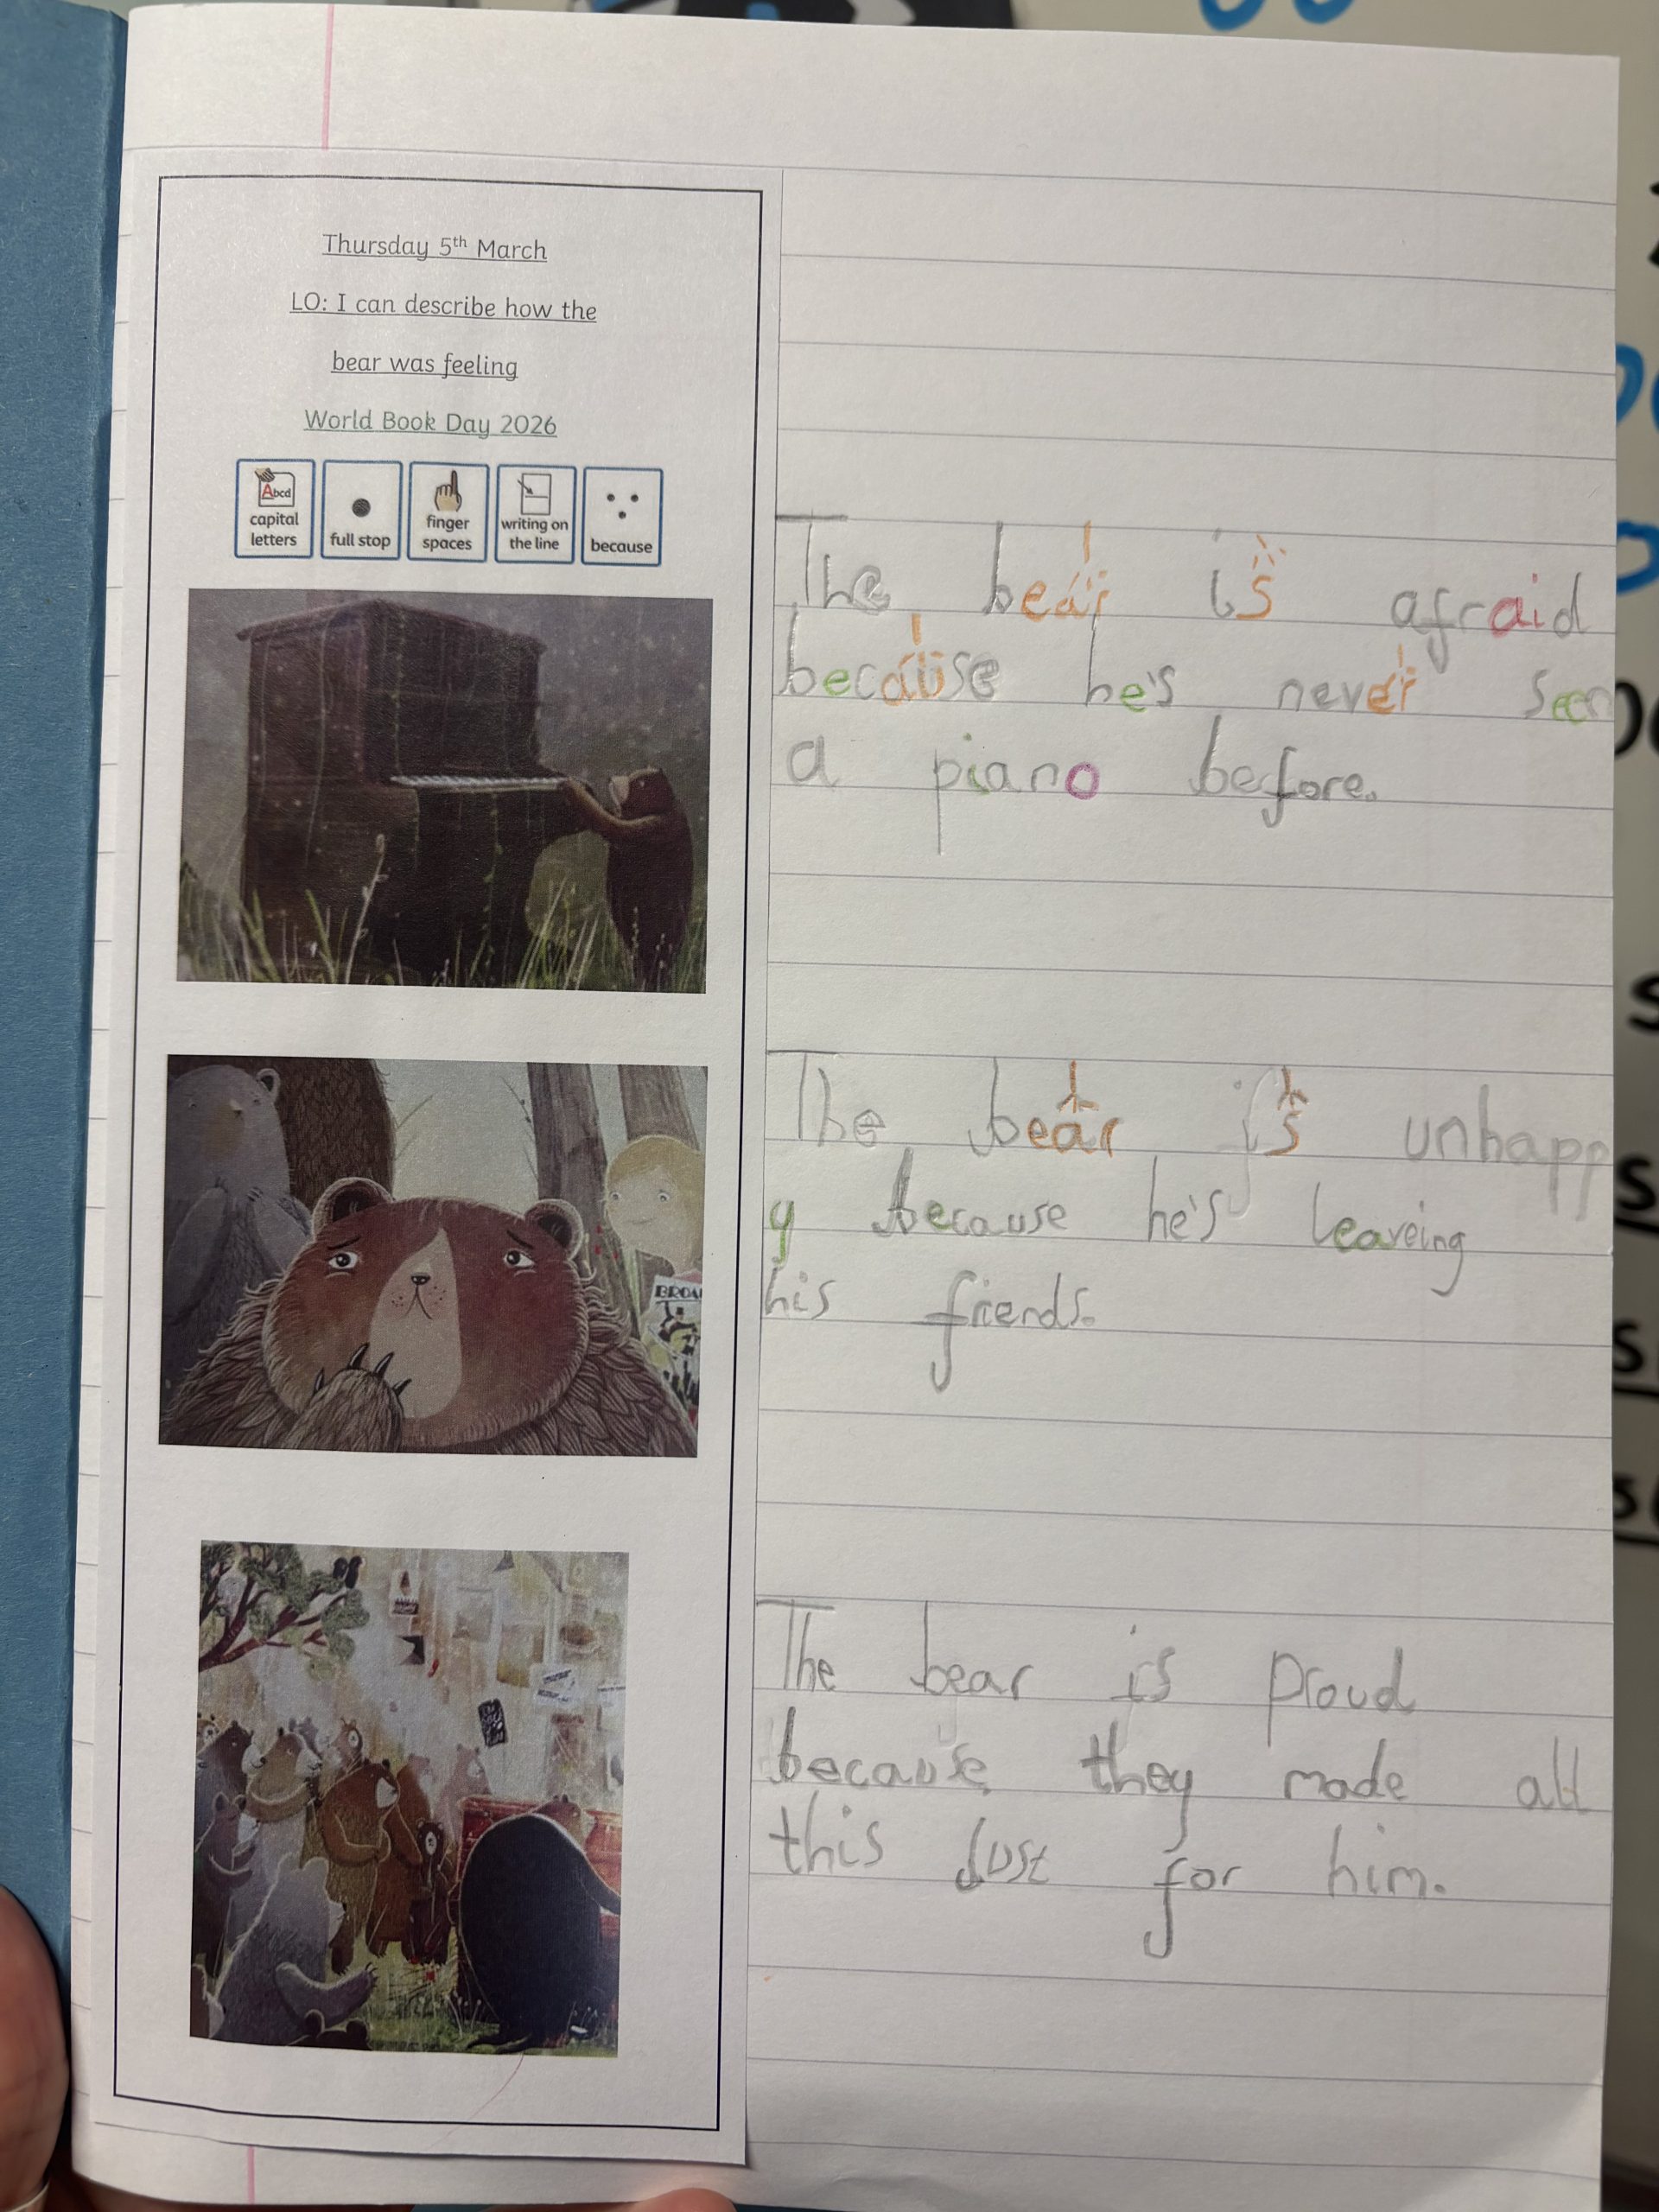 Thursday 5th March
LO: I can describe how the
bear was feeling
World Book Day 2026
Abcd
capital
letters
full stop
finger
spaces
writing on
the line
because
The bear is afraid
because he's never seen
a piano before.
The bear is unhapp
y because he's leaveing
his friends.
BROA
The bear is proud
because they made all
this Just for him.